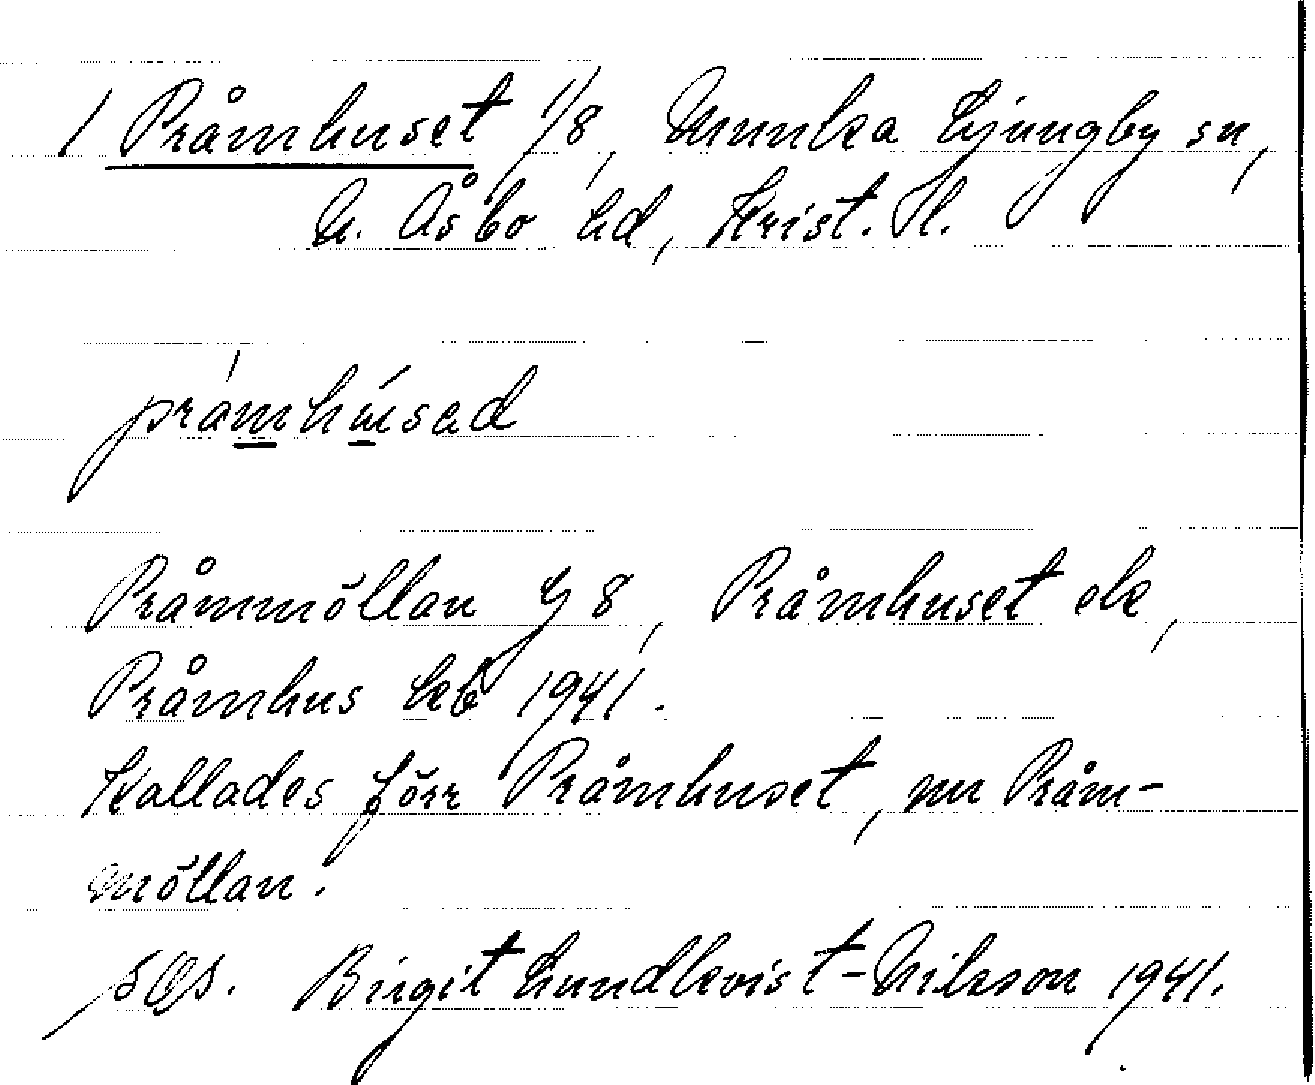 / Pråmhuset 1/8, Munka Ljungby sn,
N. Åsbo hd, Krist. l.
pråmhúsad
Pråmmöllan 8, Pråmhuset ek,
Pråmhus keb 1941.
Kallades förr Pråmhuset, nu Pråm-
möllan.
Birgit Lundkvist-Nilsson 1941.